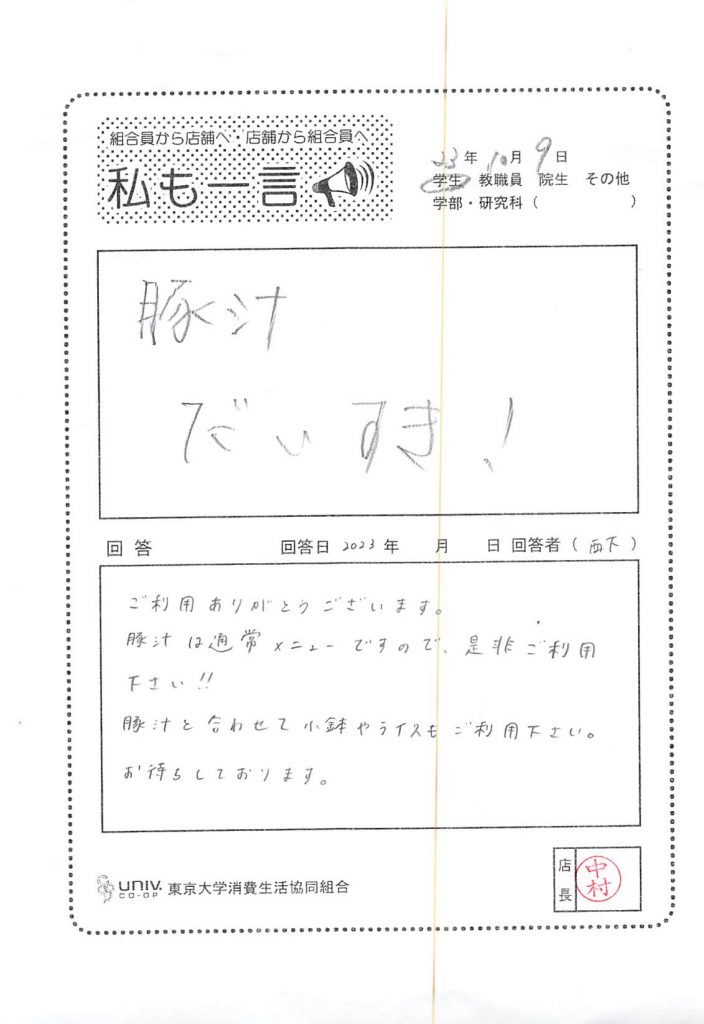 組合員から店舗へ・店舗から組合員へ
私も一言
23年10月9日
学生 教職員 院生 その他
学部・研究科（ ）
豚汁
だいすき！
回答 回答日 2023年 月 日 回答者（西下）
ご利用ありがとうございます。
豚汁は通常メニューですので、是非ご利用
下さい!!
豚汁と合わせて小鉢やライスもご利用下さい。
お待ちしております。
UNIV. CO-OP 東京大学消費生活協同組合
店長 中村